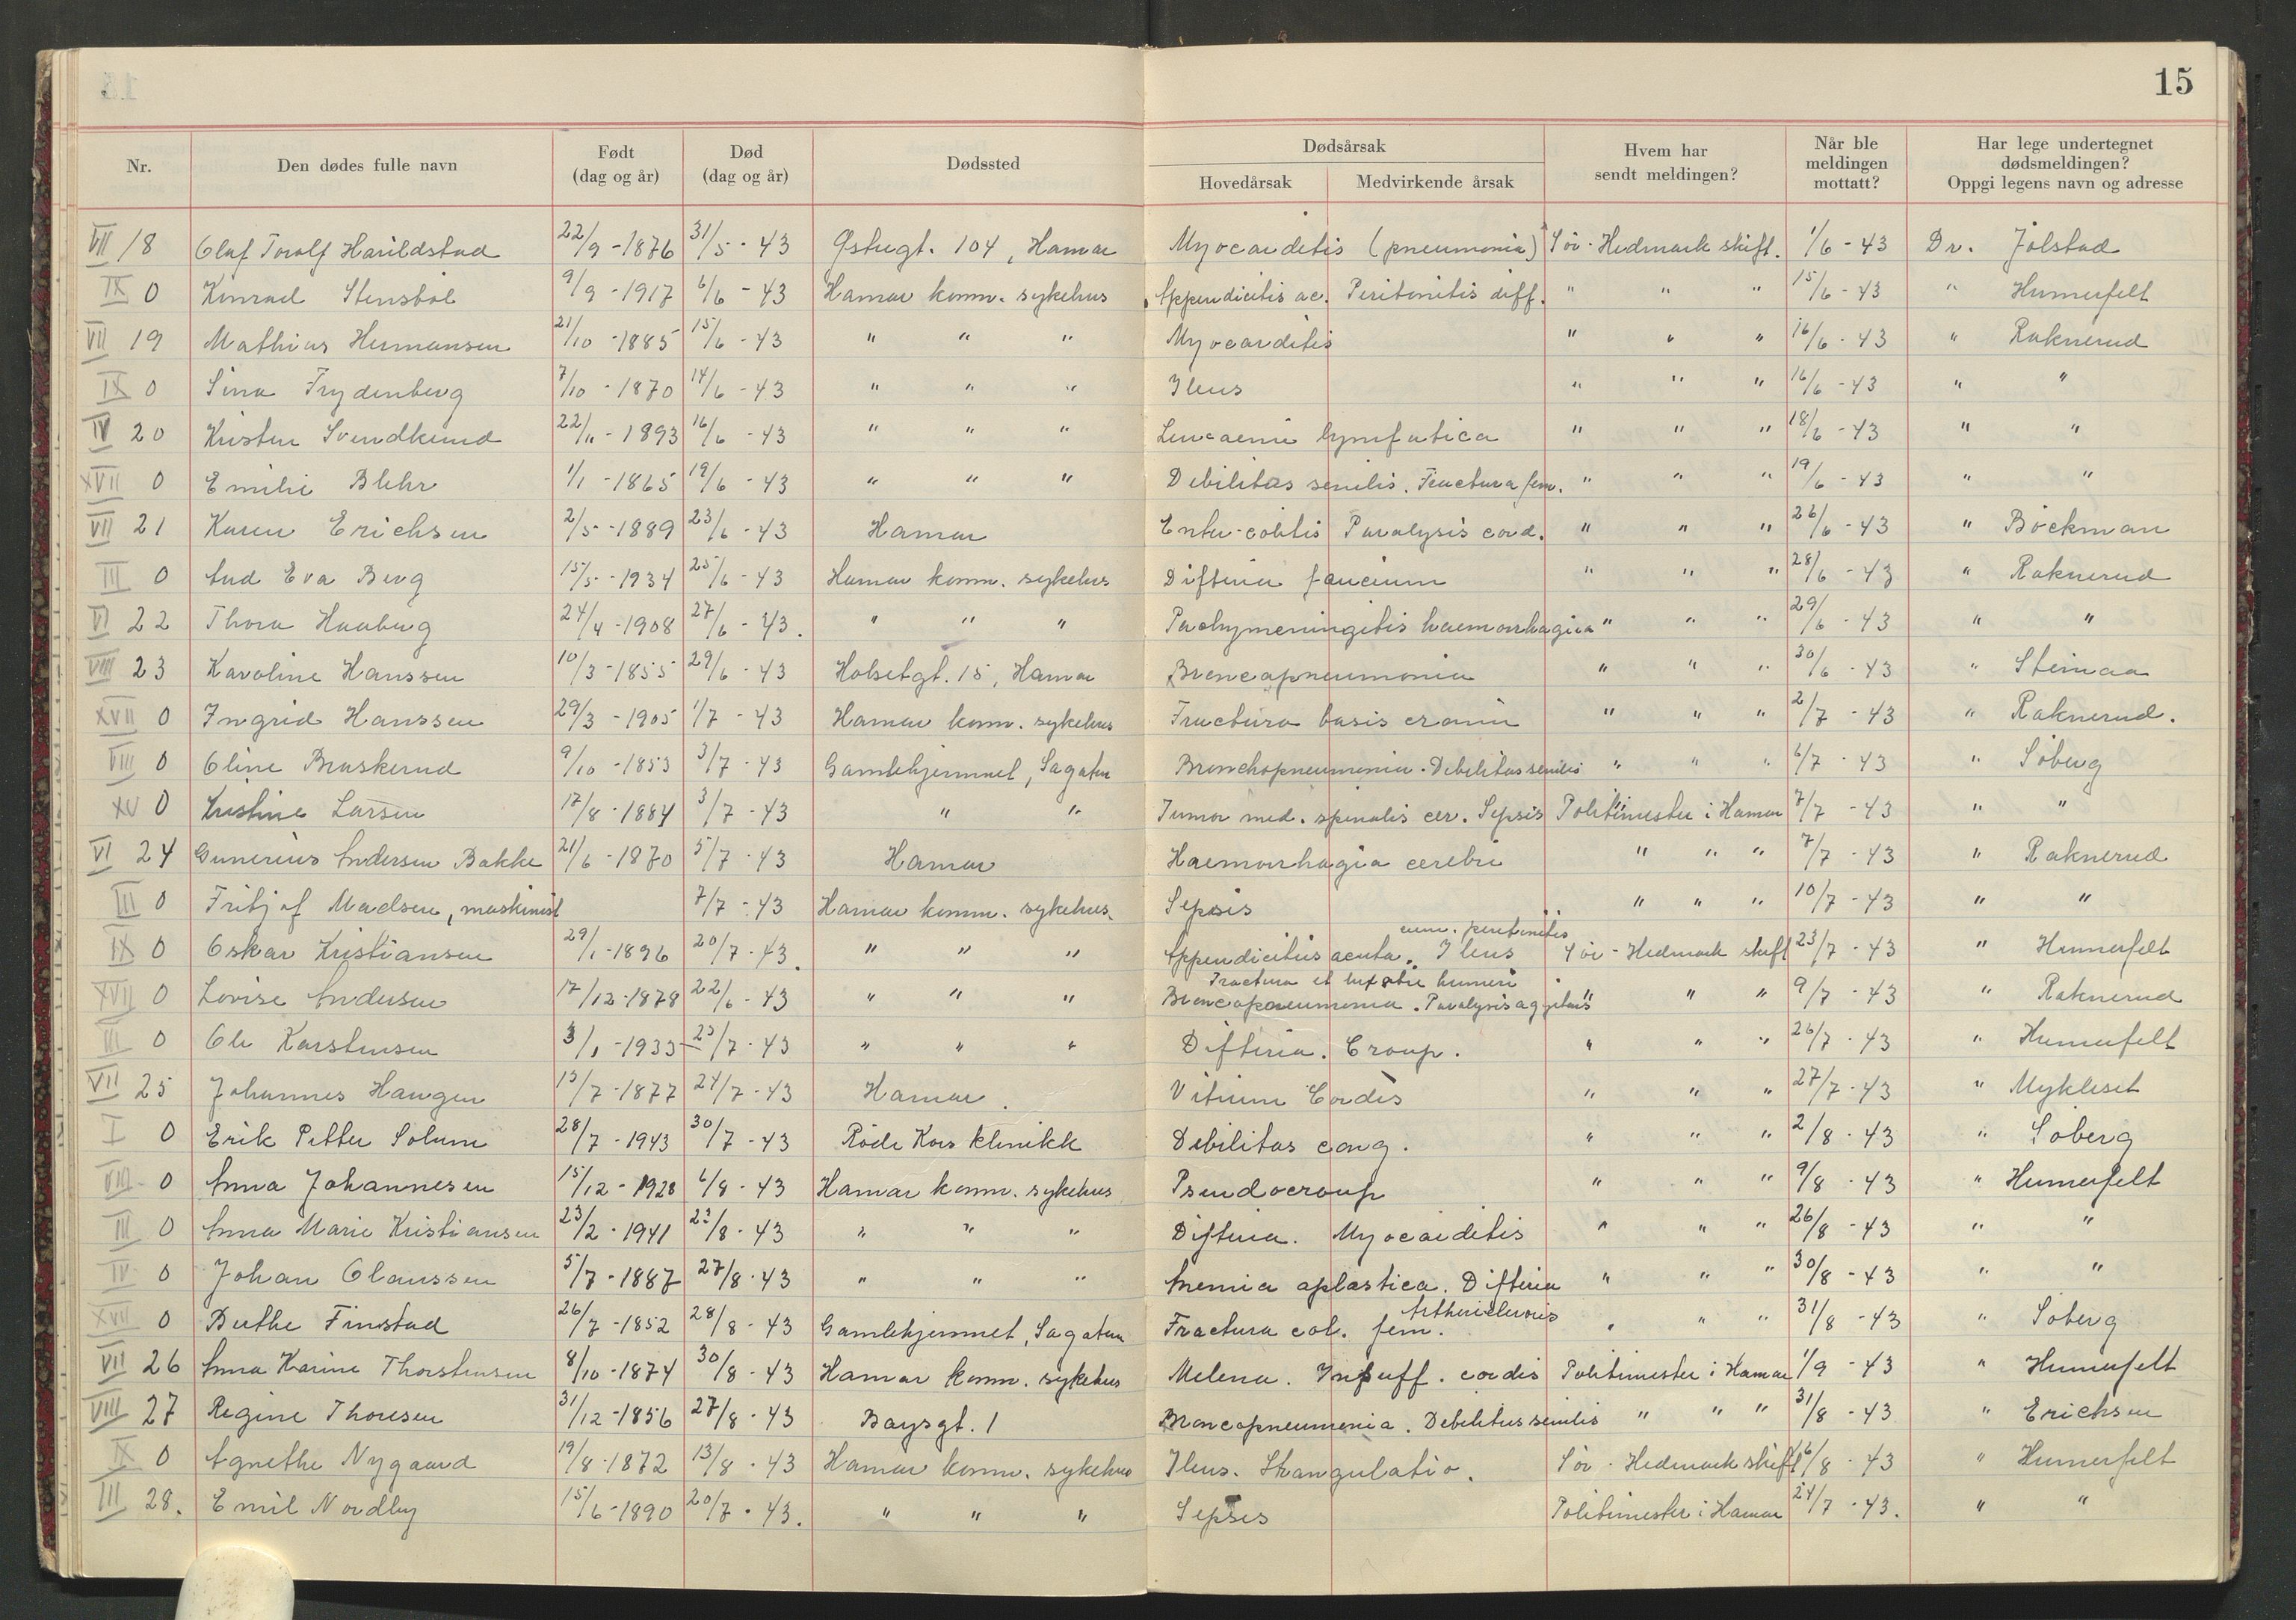 15
Nr. Den dødes fulle navn Født (dag og år) Død (dag og år) Dødssted Dødsårsak Hovedårsak Medvirkende årsak Hvem har sendt meldingen? Når ble meldingen mottatt? Har lege undertegnet dødsmeldingen? Oppgi legens navn og adresse
VII 18 Olaf Toralf Harildstad 22/9-1876 31/5-43 Østregt. 104, Hamar Myocarditis (pneumonia) Sör-Hedmark skift. 1/6-43 Dr. Jölstad
IX 0 Konrad Stensböl 9/9-1917 6/6-43 Hamar komm. sykehus Appendicitis ac. Peritonitis diff. " " " 15/6-43 " Humerfelt
VII 19 Mathias Hermansen 21/10-1885 15/6-43 " " " Myocarditis " " " 16/6-43 " Raknerud
IX 0 Sina Frydenberg 7/10-1870 14/6-43 " " " Ileus " " " 16/6-43 " "
IV 20 Kristen Svendkerud 22/11-1893 16/6-43 " " " Leucaemi lymfatica " " " 18/6-43 " "
XVII 0 Emilie Blehr 1/1-1865 19/6-43 " " " Debilitas senilis. Fractura fem. " " " 19/6-43 " "
VII 21 Karen Erichsen 2/5-1889 23/6-43 Hamar Enter-colitis Paralysis cord. " " " 26/6-43 " Böckman
III 0 Aud Eva Berg 15/5-1934 25/6-43 Hamar komm. sykehus Difteria faucium " " " 28/6-43 " Raknerud
VI 22 Thora Haaberg 24/4-1908 27/6-43. " " " Pachymeningitis haemorrhagica " " " 29/6-43 " "
VIII 23 Karoline Hanssen 10/3-1855 29/6-43 Holsetgt. 15, Hamar Broncopneumonia " " " 30/6-43 " Steinaa
XVII 0 Ingrid Hanssen 29/3-1905 1/7-43 Hamar komm. sykehus Fractura basis cranii " " " 2/7-43 " Raknerud.
VIII 0 Oline Braskerud 9/10-1853 3/7-43 Gamlehjemmet, Sagatun Bronchopneumonia. Debilitas senilis " " " 6/7-43 " Söberg
XV 0 Kristine Larsen 17/8-1884 3/7-43 " " Tumor med. spinalis cer. Sepsis Politimester i Hamar 7/7-43 " "
VI 24 Gunerius Andersen Bakke 21/6-1870 5/7-43 Hamar Haemorrhagia cerebri " " " 7/7-43 " Raknerud
III 0 Fritjof Madsen, maskinist 7/7-43 Hamar komm. sykehus. Sepsis " " " 10/7-43 " "
IX 0 Oskar Kristiansen 29/1-1896 20/7-43. " " " Appendicitis acuta. Ileus cum. peritonitis Sör-Hedmark skift 23/7-43 " Humerfelt
XVII 0 Lovise Andersen 17/12-1878 22/6-43 " " " Fractura et luxatio humeri Broncopneumonia. Paralysis agitans " " " 9/7-43 " Raknerud
III 0 Ole Karstensen 3/1-1933 23/7-43 " " " Difteria. Croup. " " " 26/7-43 " Humerfelt
VII 25 Johannes Haugen 13/7-1877 24/7-43 Hamar. Vitium Cordis " " " 27/7-43 " Mykleset
I 0 Erik Petter Solum 28/7-1943 30/7-43 Röde Kors klinikk Debilitas cong. " " " 2/8-43 " Söberg
VIII 0 Anna Johannesen 15/12-1928 6/8-43 Hamar komm. sykehus Pseudocroup " " " 9/8-43 " Humerfelt
III 0 Anna Marie Kristiansen 23/2-1941 23/8-43 " " " Difteria. Myocarditis " " " 26/8-43 " "
IV 0 Johan Claussen 5/7-1887 27/8-43 " " " Anemia aplastica. Difteria " " " 30/8-43 " "
XVII 0 Berthe Finstad 26/7-1852 28/8-43 Gamlehjemmet, Sagatun Fractura col. fem. Artheriosclerosis " " " 31/8-43 " Söberg
VII 26 Anna Karine Thorstensen 8/10-1874 30/8-43 Hamar komm. sykehus Melena. Insuff. cordis Politimester i Hamar 1/9-43 " Humerfelt
VIII 27 Regine Thoresen 31/12-1856 27/8-43 Baysgt. 1 Broncopneumonia. Debilitas senilis " " " 31/8-43 " Erichsen
IX 0 Agnethe Nygaard 19/8-1872 13/8-43 Hamar komm. sykehus Ileus. Strangulatio. Sör-Hedmark skift 16/8-43 " Humerfelt
III 28. Emil Nordby 15/6-1890 20/7-43. " " " Sepsis Politimester i Hamar 24/7-43. " "